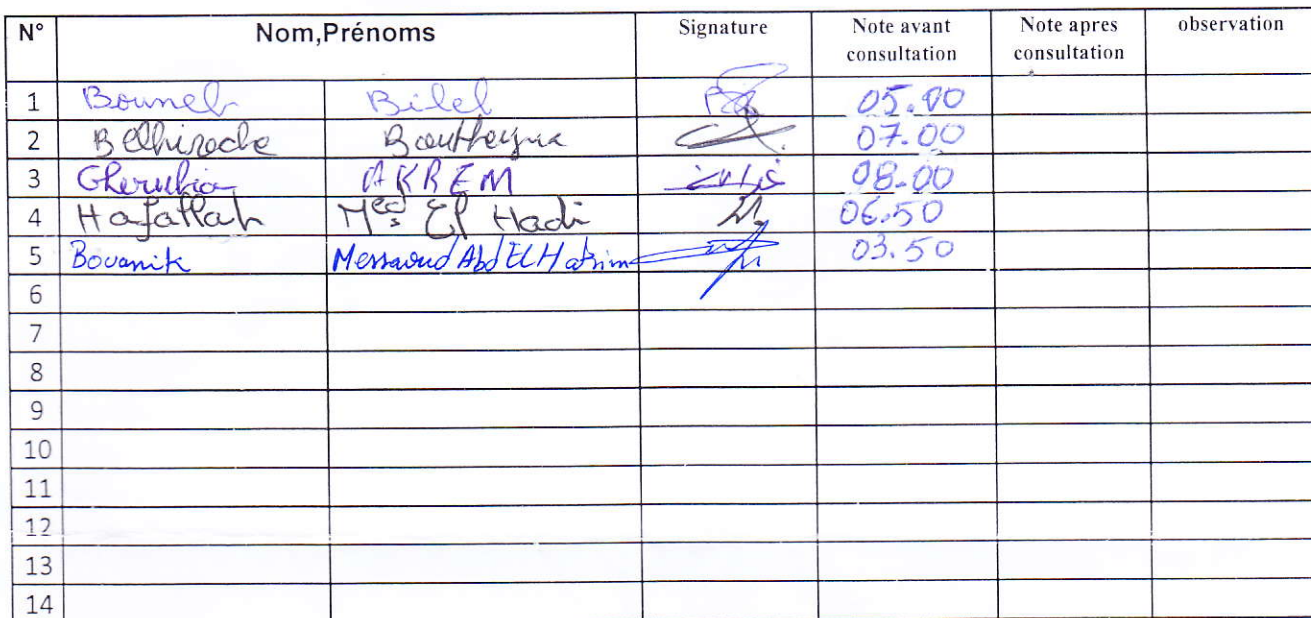 N° Nom,Prénoms Signature Note avant consultation Note apres consultation observation
1 Bouneb Bilel 05.00
2 Belhiroche Boutheyna 07.00
3 AKREM 08.00
4 Hafallah Med El Hadi 06.50
5 Bouanik Messaoud Abd El Hakim 03.50
6
7
8
9
10
11
12
13
14